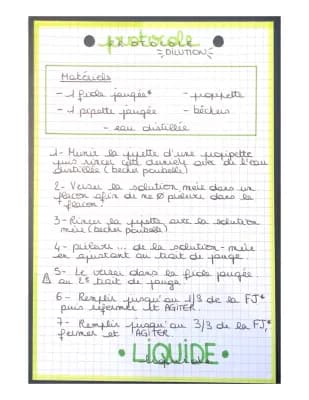 PROTOCOLE
- DILUTION -
Matériels
- 1 fiole jaugée* - propipette
- 1 pipette jaugée - béchers
- eau distillée
1- Munir la pipette d'une propipette
puis rincer cette dernière avec de l'eau
distillée (becher poubelle)
2- Verser la solution mère dans un
flacon afin de ne Ø prélever dans le
flacon.
3- Rincer la pipette avec la solution
mère (becher poubelle)
4- prélever ... de la solution-mère
en ajustant au trait de jauge.
5- Le verser dans la fiole jaugée
au 2e trait de jauge.
6- Remplir jusqu'au 1/3 de la FJ*
puis refermer et AGITER.
7- Remplir jusqu'au 3/3 de la FJ,*
fermer et AGITER.
• LIQUIDE •